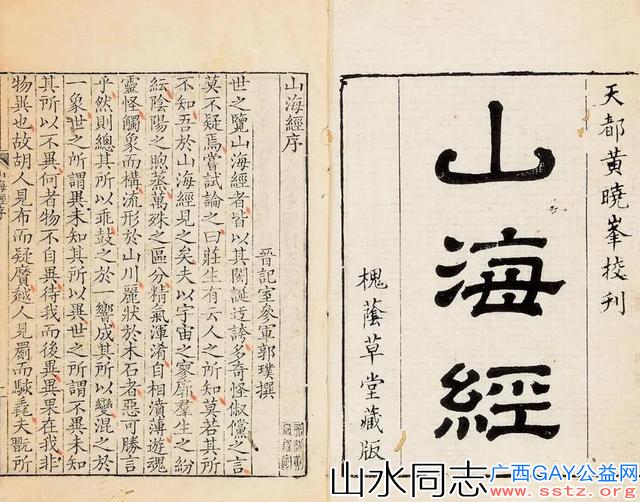 天都黃曉峯校刊
山海經
槐蔭草堂藏版
山海經序
晉記室參軍郭璞撰
世之覽山海經者皆以其閎誕迂誇多奇怪俶儻之言
莫不疑焉嘗試論之曰莊生有云人之所知莫若其所
不知吾於山海經見之矣夫以宇宙之寥廓羣生之紛
紜陰陽之煦蒸萬殊之區分精氣渾淆自相濆薄遊魂
靈怪觸象而構流形於山川麗狀於木石者惡可勝言
乎然則總其所以乖鼓之於一響成其所以變混之於
一象世之所謂異未知其所以異世之所謂不異未知
其所以不異何者物不自異待我而後異異果在我非
物異也故胡人見布而疑黂越人見罽而駭毳夫翫所
山海經序
山水同志
广西GAY公益网
www.sstz.org